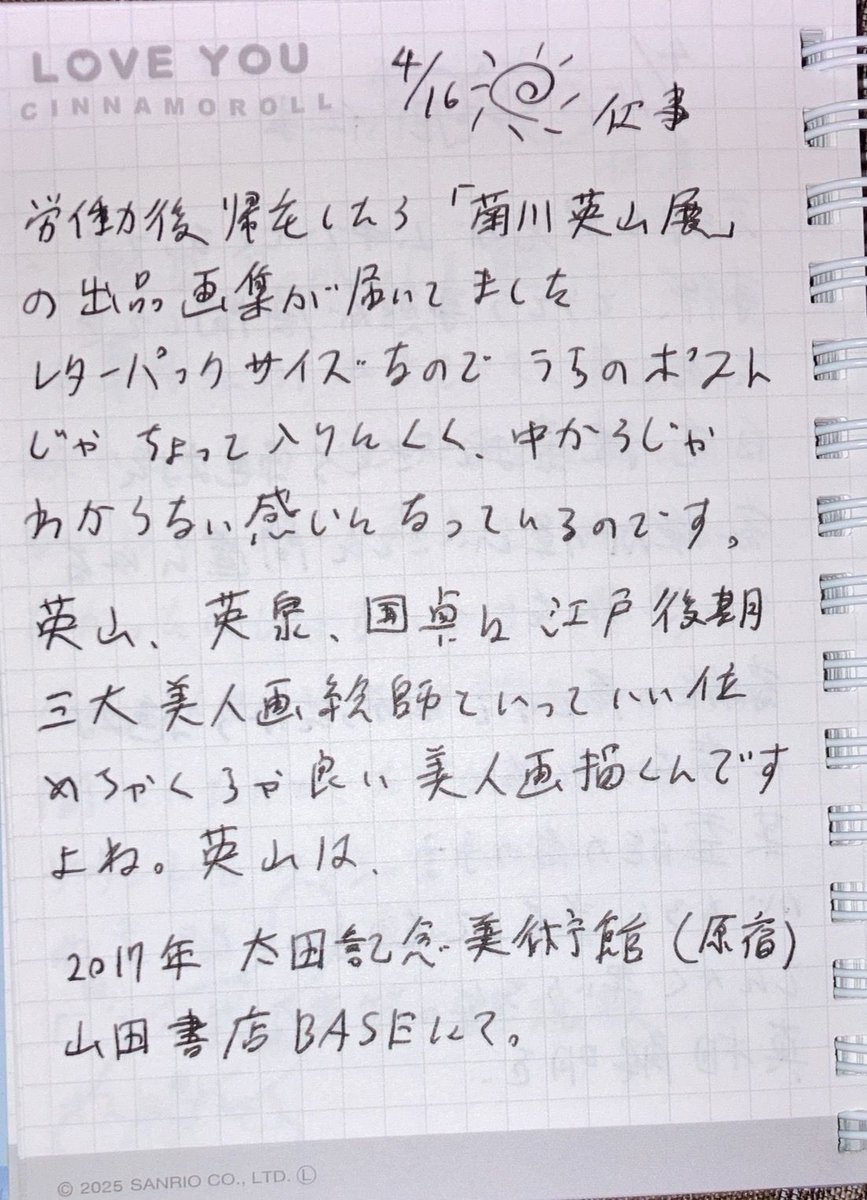 LOVE YOU
CINNAMOROLL
4/16 仕事
労働後帰宅したら「菊川英山展」
の出品画集が届いてました
レターパックサイズなので うちのポスト
じゃ ちょって入りにくく、中からじゃ
わからない感じになっているのです。
英山、英泉、国貞は江戸後期
三大美人画絵師ていっていい位
めちゃくちゃ良い美人画描くんです
よね。英山は、
2017年 太田記念美術館(原宿)
山田書店BASEにて。
© 2025 SANRIO CO., LTD. Ⓛ